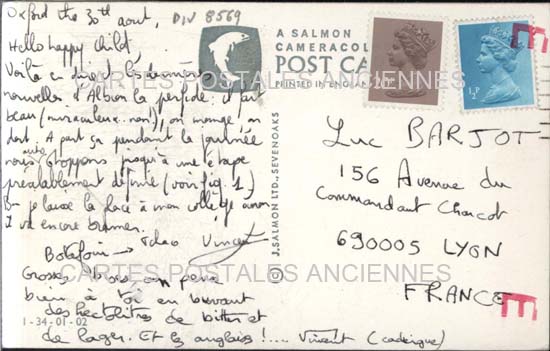 Oxford the 30th aout,
DIV 8569
Hello happy child,
Voilà en direct les dernières
nouvelles d'Albion la perfide: il fait
beau (miraculeux non!), on mange on
dort. A part ça pendant la journée
nous stoppons jusqu'à une étape
préalablement définie (voir fig. 1)
Bon je laisse la place à mon collègue sinon
il va encore bramer.
Tchao Vincent
Grosses bises, on pense
bien à toi en buvant
des hectolitres de bitter et
de lager. Et les anglais!.... Vincent
1-34-01-02
A SALMON
CAMERACOL
POST CA
PRINTED IN ENGLAND
© J. SALMON LTD., SEVENOAKS
½P
Luc BARJOT
156 Avenue du
Commandant Charcot
690005 LYON
FRANCE
CARTES POSTALES ANCIENNES
CARTES POSTALES ANCIENNES